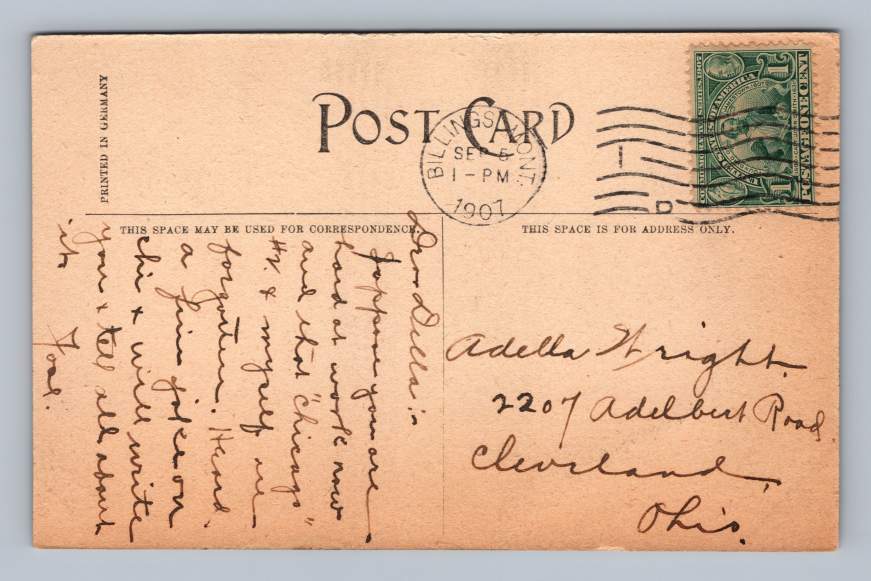 PRINTED IN GERMANY
POST CARD
BILLINGS, MONT.
SEP 5
1-PM
1907
SERIES 1907
UNITED STATES OF AMERICA
1 POSTAGE ONE CENT 1
THIS SPACE MAY BE USED FOR CORRESPONDENCE.
THIS SPACE IS FOR ADDRESS ONLY.
Dear Della:
Suppose you are
hard at work now
and that "Chicago"
& myself are
forgotten. Heard
a fine joke on
chi & will write
you & tell all about
it.
Adella Wright.
2207 Adelbert Road
Cleveland,
Ohio.